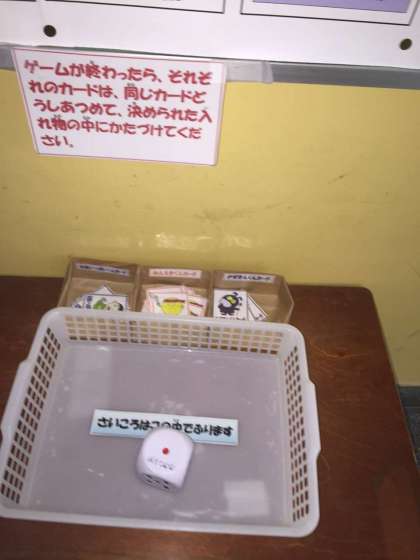 ゲームが終わったら、それぞ
れのカードは、同じカードど
うしあつめて、決められた入
れ物の中にかたづけてくだ
さい。
さいころはこの中でふります